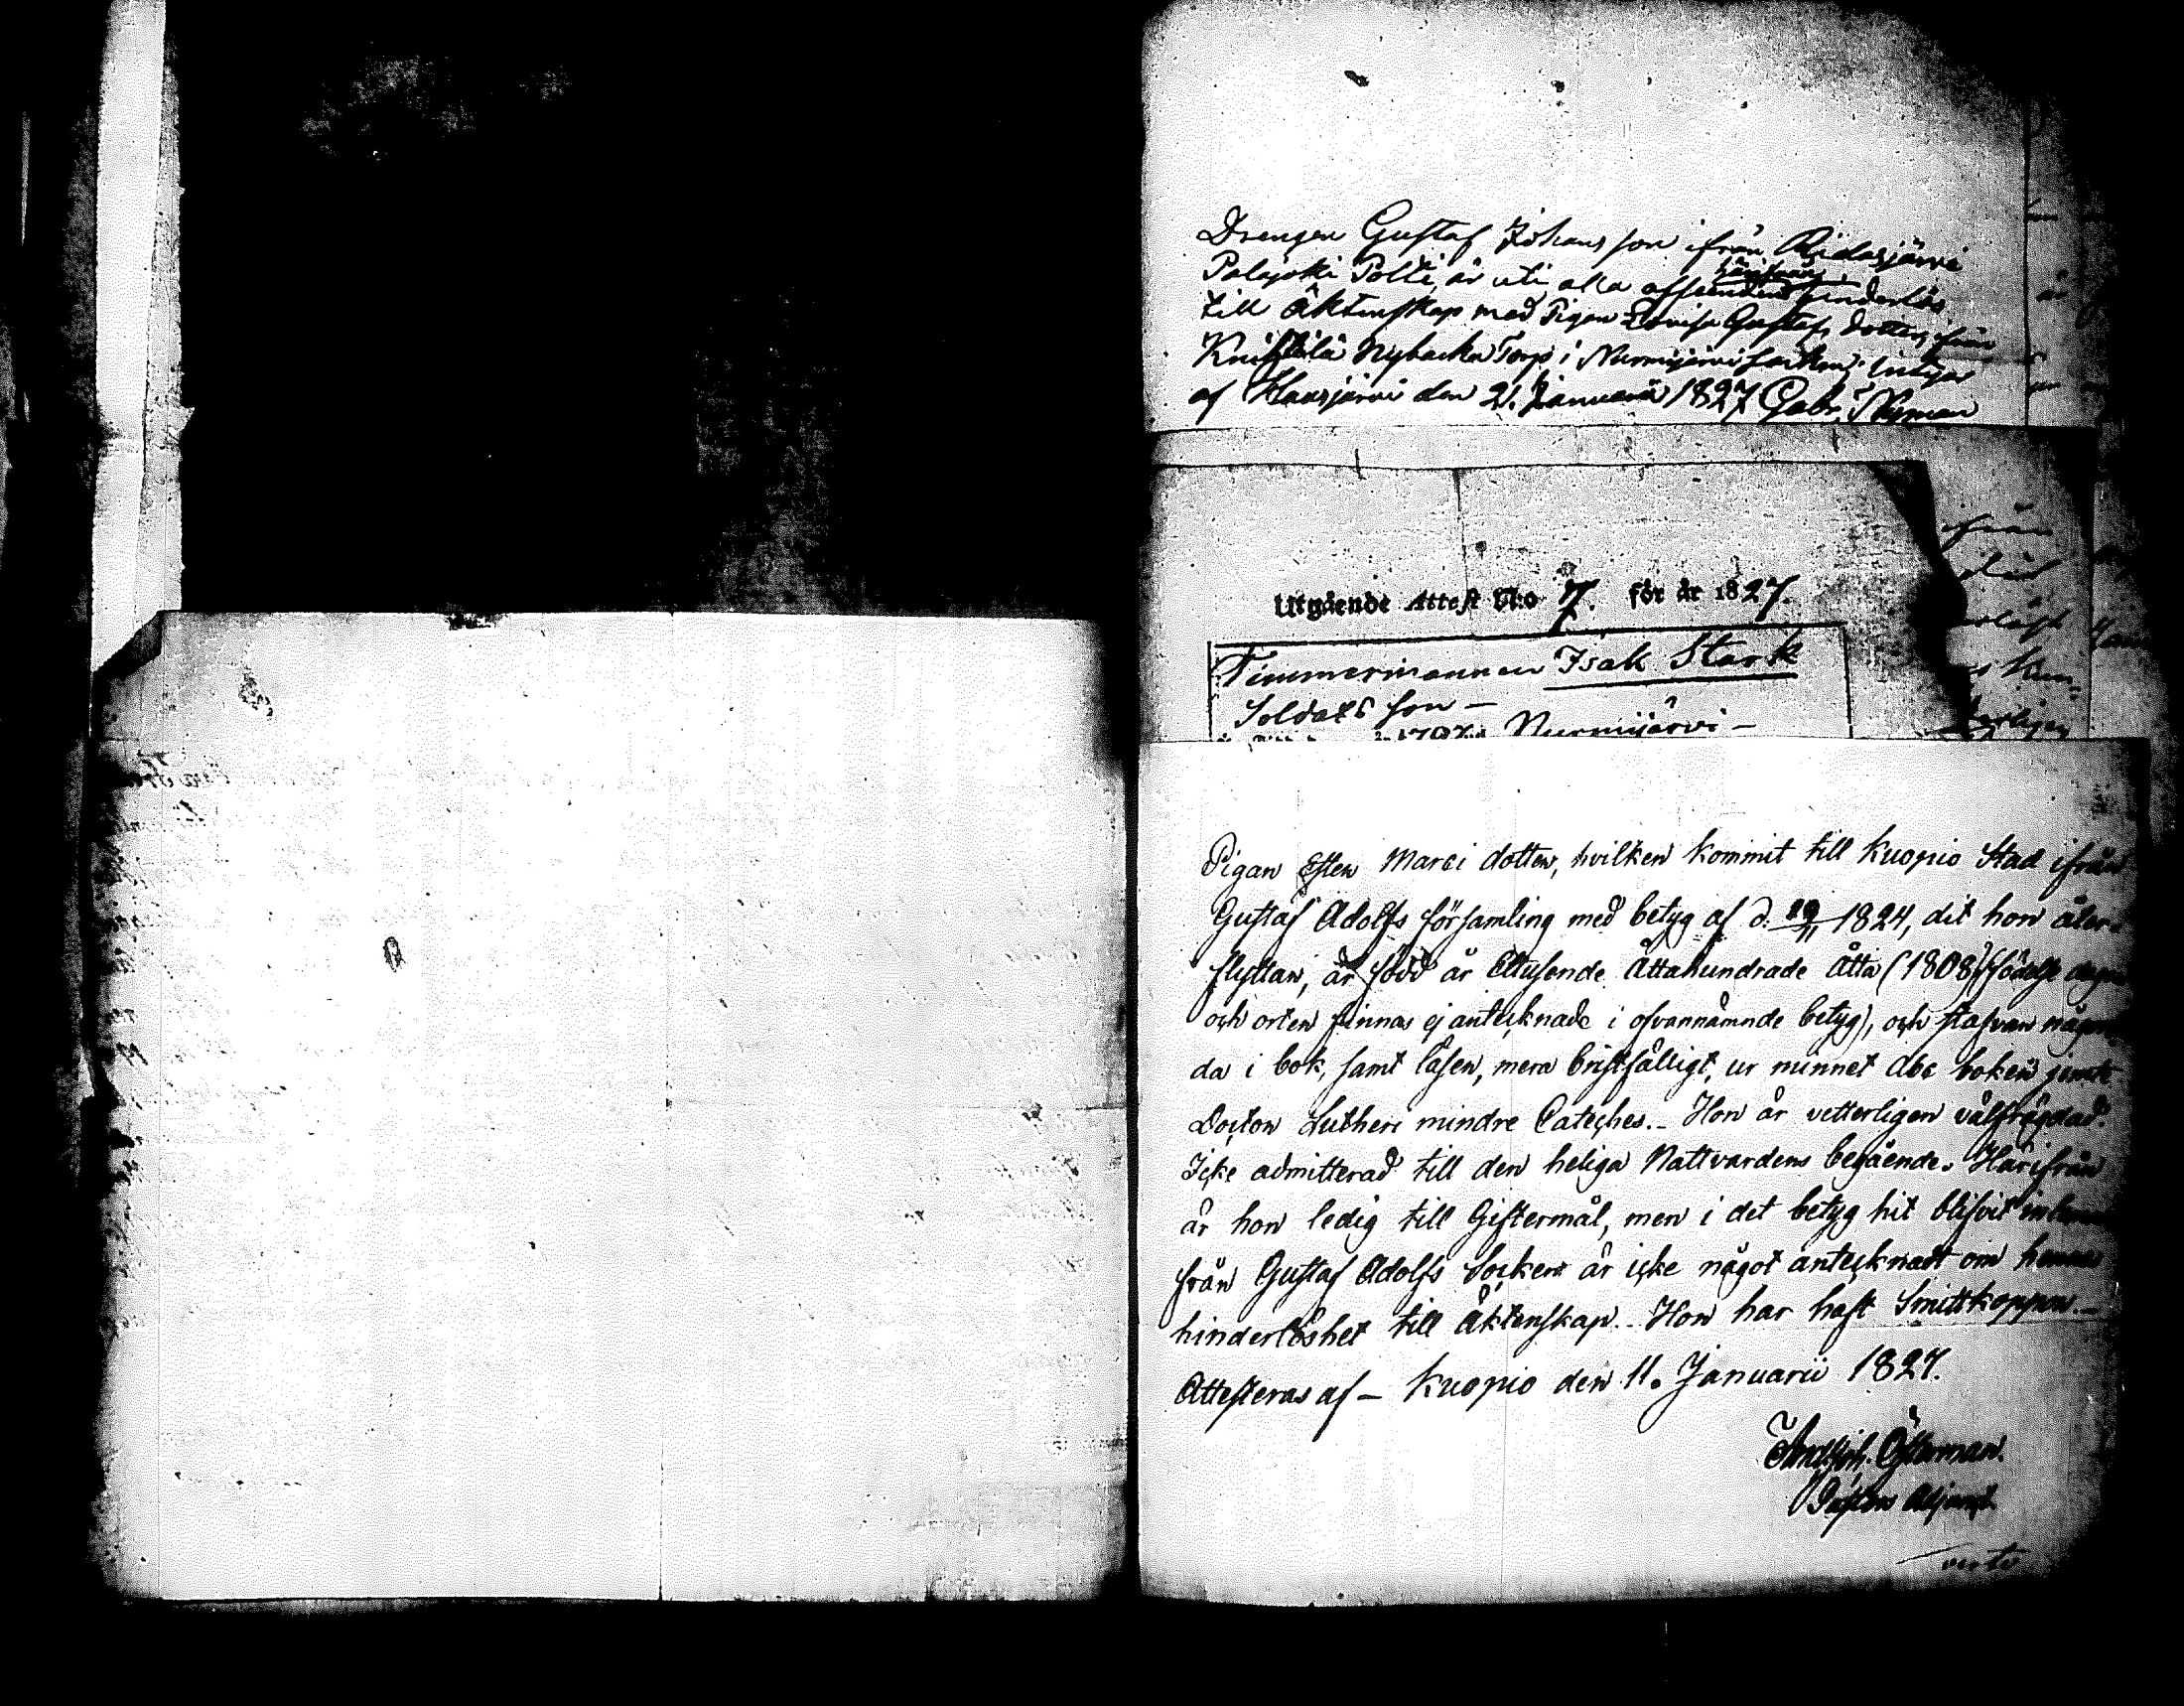 Drengen Gustaf Johans son ifrån Ridasjärvi
Palojoki Polti, är uti alla afseenden härifrån hinderlös
till Äktenskap med Pigan Lovisa Gustafs dotter, ifrån
Nybacka Torp i Nurmijärvi Sockn; intygar
af Hausjärvi den 21. Januarii 1827 Gabr. Nyman
Utgående Attest N:o 7. för år 1827.
Timmermannen Isak Stark
Soldats son —
Nurmijärvi —
Pigan Ester Marci dotter, hvilken kommit till Kuopio Stad ifrån
Gustaf Adolfs församling med betyg af d. 1824, dit hon åter-
flyttar, är född år Ettusende Åttahundrade Åtta (1808) (födelse dagen
och orten finnas ej antecknade i ofvannämnde betyg), och stafvar någor-
da i bok, samt läser, mera bristfälligt, ur minnet Abc boken jemte
Doctor Lutheri mindre Cateches. – Hon är vetterligen välfrägdad.
Icke admitterad till den heliga Nattvardens begående. Härifrån
är hon ledig till Giftermål, men i det betyg hit blifvit
från Gustaf Adolfs Socken är icke något antecknadt om hennes
hinderlöshet till Äktenskap. – Hon har haft Smittkoppor. –
Attesteras af – Kuopio den 11. Januarii 1827.
Österman.
Pastors Adjunct.
verte